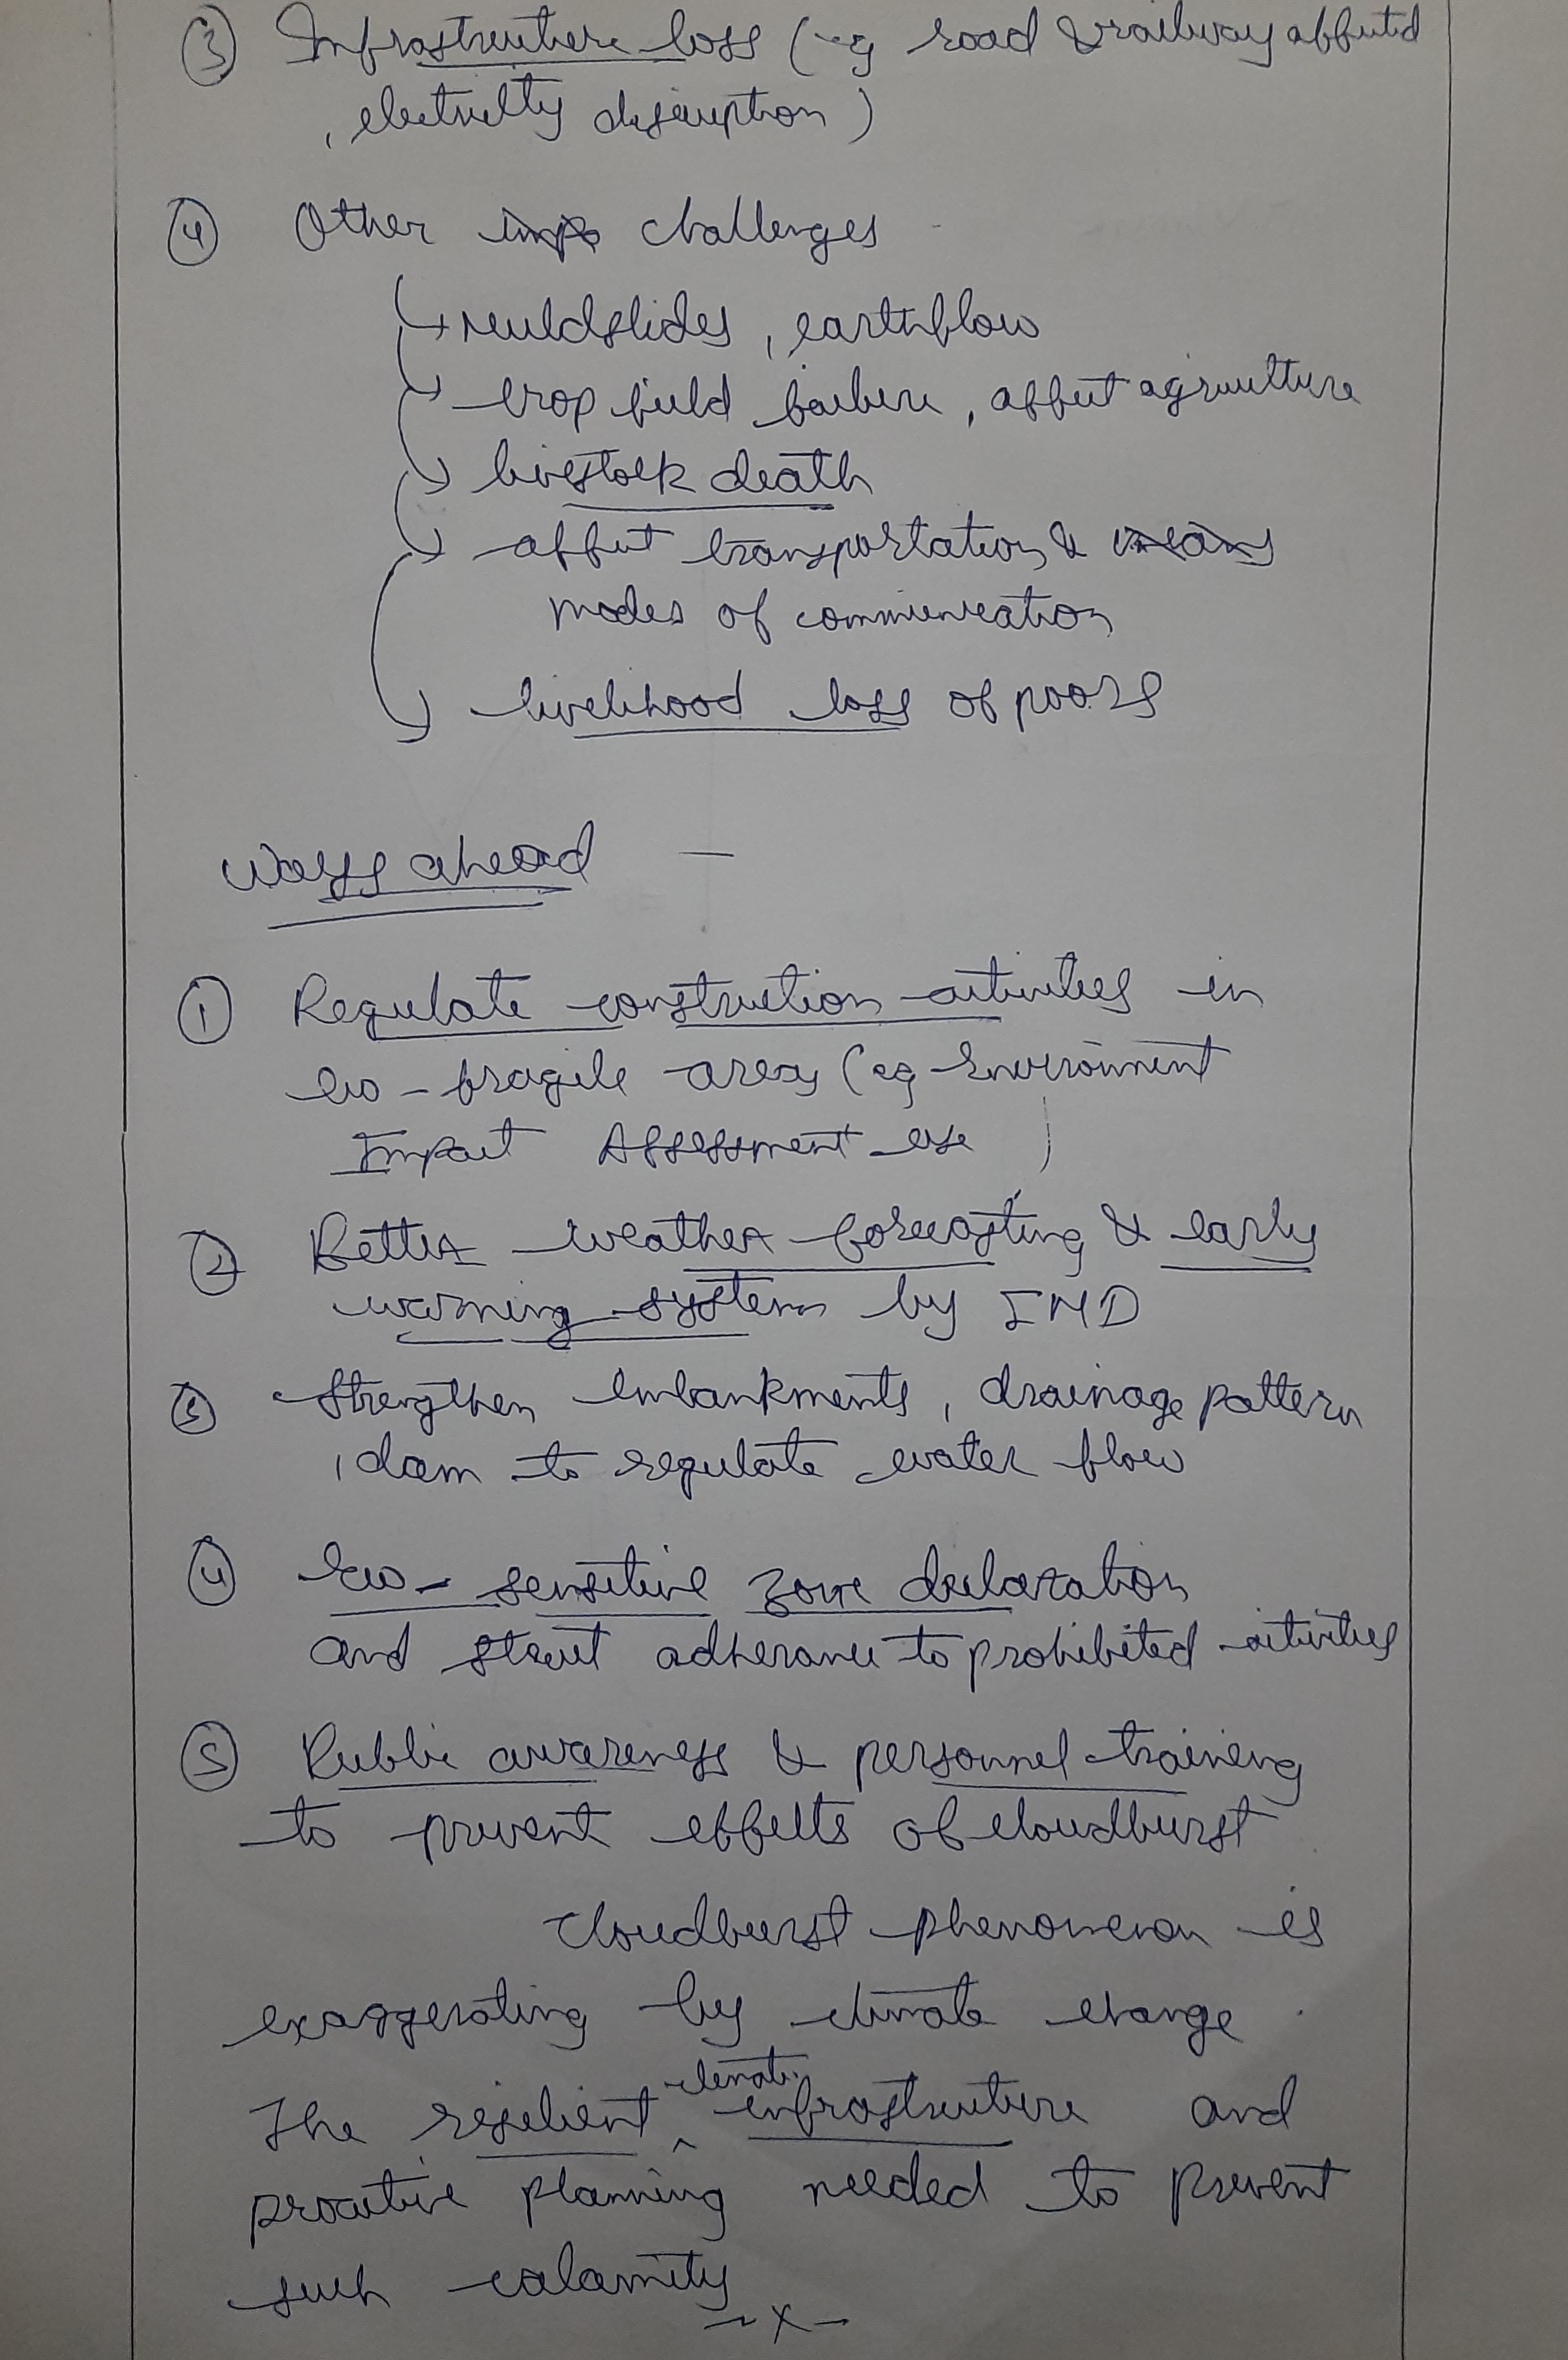 ③ Infrastructure loss (eg road & railway affected
, electricity disruption)
④ Other challenges
↳ muldslides, earthflow
↳ crop field failure, affect agriculture
↳ livestock death
↳ affect transportation &
modes of communication
↳ livelihood loss of poors
Ways ahead —
① Regulate construction activities in
eco-fragile areas (eg Environment
Impact Assessment use)
② Better weather forecasting & early
warning system by IMD
③ Strengthen embankments, drainage pattern
, dam to regulate water flow
④ Eco-sensitive zone declaration
and strict adherance to prohibited activities
⑤ Public awareness & personnel training
to prevent effects of cloudburst
Cloudburst phenomenon is
exaggerating by climate change.
The resilient ^ climatic infrastructure and
proactive planning needed to prevent
such calamity
—x—